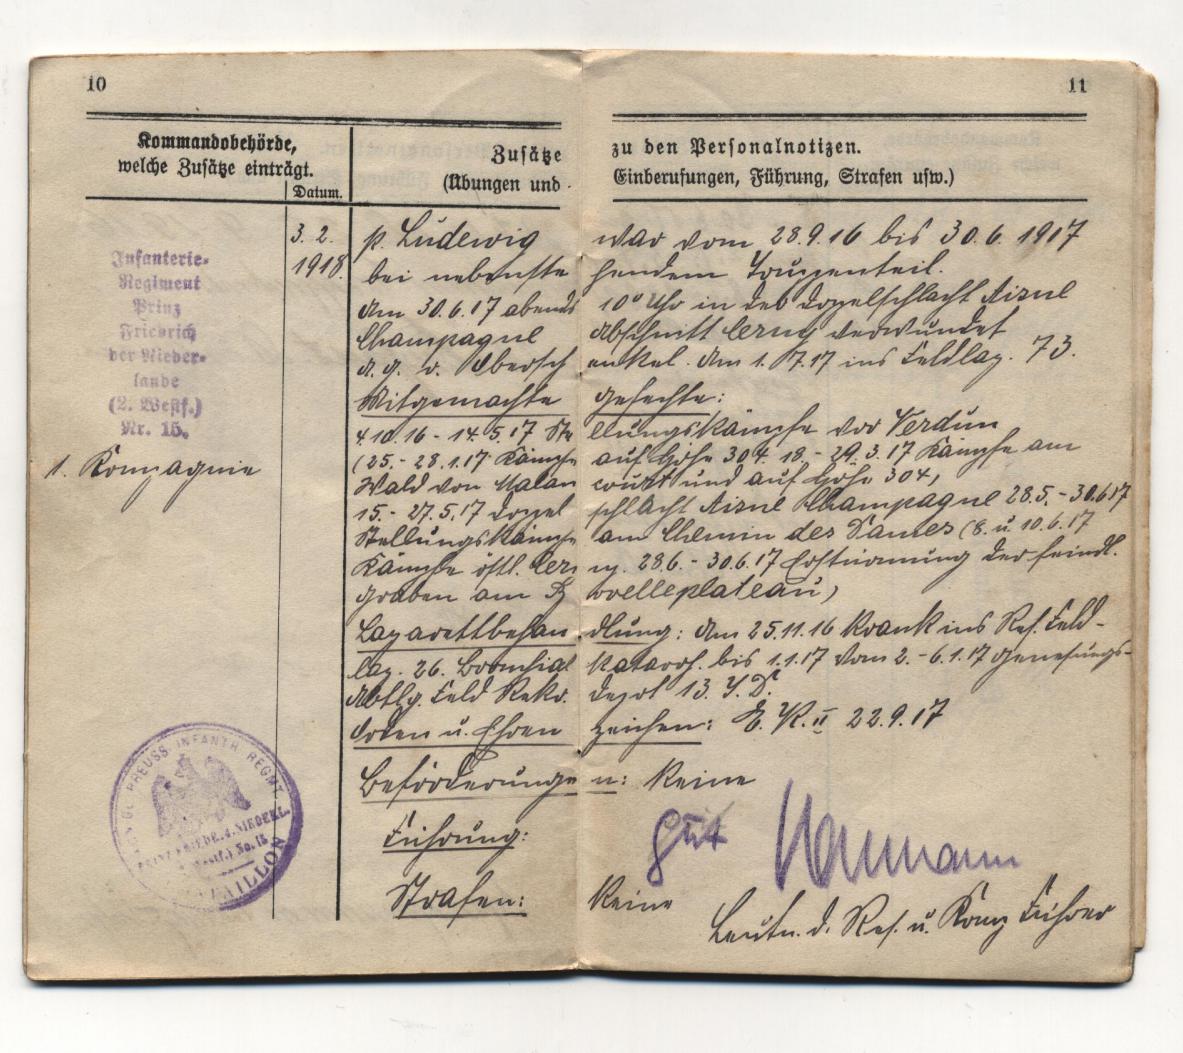 10
11
Kommandobehörde,
welche Zusätze einträgt.
Datum.
Zusätze zu den Personalnotizen.
(Übungen und Einberufungen, Führung, Strafen usw.)
Infanterie-
Regiment
Prinz
Friedrich
der Nieder-
lande
(2. Westf.)
Nr. 15.
1. Kompagnie
3. 2.
1918.
p. Ludewig war vom 28.9.16 bis 30.6.1917
bei nebenstehendem Truppenteil.
Am 30.6.17 abends 10°° Uhr in der Doppelschlacht Aisne
Champagne Abschnitt Cerny verwundet
A.G. r. Oberschenkel. Am 1.7.17 ins Feldlaz. 73.
Mitgemachte Gefechte:
4.10.16 - 14.5.17 Stellungskämpfe vor Verdun
(25. - 28.1.17 Kämpfe auf Höhe 304. 18. - 29.3.17 Kämpfe am
Wald von Malancourt und auf Höhe 304,
15. - 27.5.17 Doppelschlacht Aisne Champagne 28.5. - 30.6.17
Stellungskämpfe am Chemin des Dames (8. u. 10.6.17
Kämpfe östl. Cerny. 28.6. - 30.6.17 Erstürmung der feindl.
Gräben am Bovelleplateau)
Lazarettbehandlung: Am 25.11.16 krank ins Res. Feld-
laz. 26. Bronchialkatarrh. bis 1.1.17 vom 2. - 6.1.17 Genesungs-
Abtlg. Feld Rekr. Depot 13. I.D.
Orden u. Ehrenzeichen: E.K. II 22.9.17
Beförderungen: Keine
Führung: gut
Strafen: Keine
Leutn. d. Res. u. Komp Führer
KÖNIGL. PREUSS. INFANTR. REGMT.
PRINZ FRIEDR. d. NIEDERL.
(2. Westf.) No. 15
BATAILLON